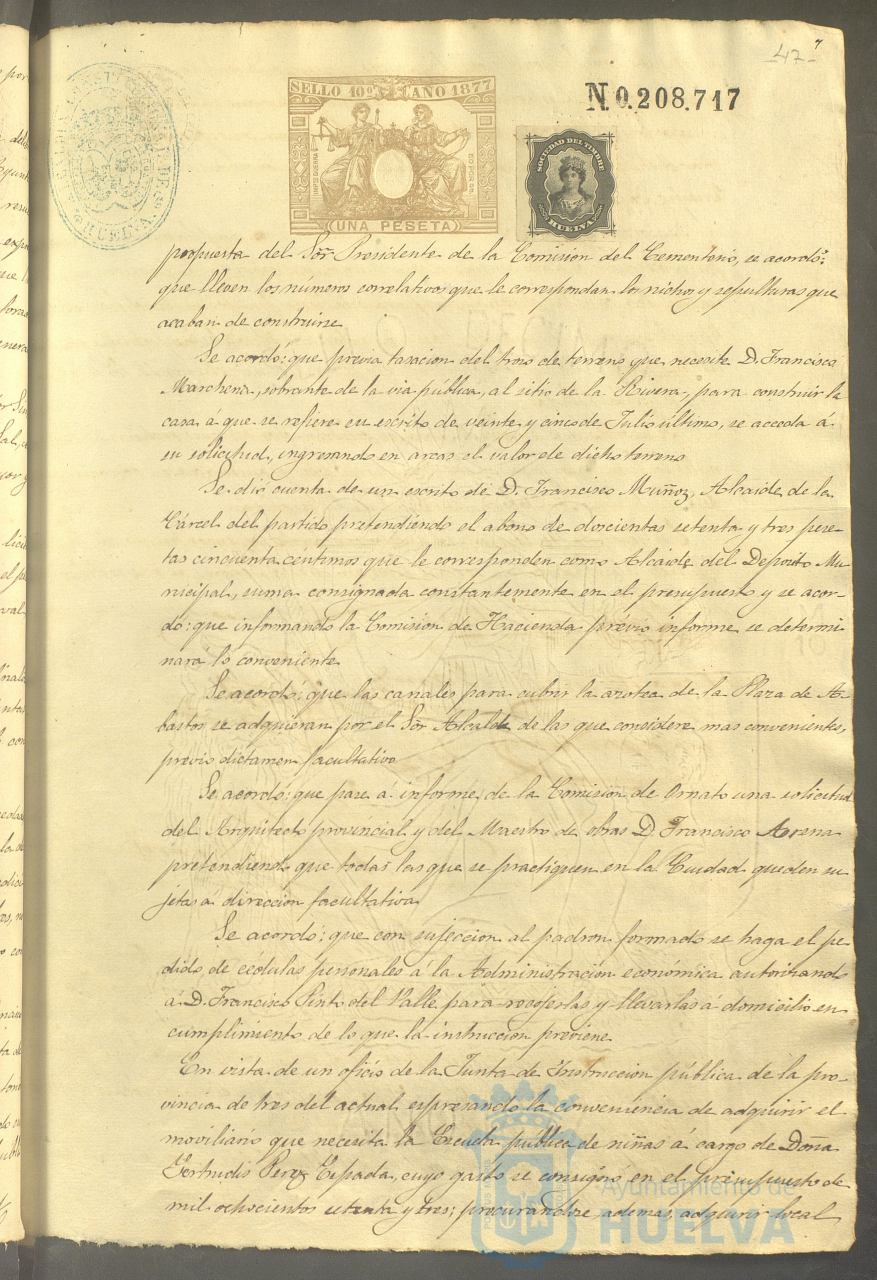 47
SELLO 10º AÑO 1877
UNA PESETA
N.0.208.717
SOCIEDAD DEL TIMBRE
HUELVA
HUELVA
propuesta del Sõr Presidente de la Comision del Cementerio, se acordó:
que lleven los números correlativos que le correspondan los nichos y sepulturas que
acaban de construirse
Se acordó: que prévia tasacion del trozo de terreno que necesite D. Francisco
Marchena, sobrante de la via pública, al sitio de la Rivera, para construir la
casa á que se refiere su escrito de veinte y cinco de Julio último, se acceda á
su solicitud, ingresando en arcas el valor de dicho terreno
Se dió cuenta de un escrito de D. Francisco Muñoz, Alcaide de la
Cárcel del partido pretendiendo el abono de doscientas setenta y tres pese-
tas cincuenta céntimos que le corresponden como Alcaide del Deposito Mu-
nicipal, suma consignada constantemente en el presupuesto y se acor-
dó: que informando la Comision de Hacienda prévio informe se determi-
nará lo conveniente
Se acordó: que las canales para cubrir la azotea de la Plaza de A-
bastos se adquieran por el Sõr Alcalde de las que considere mas convenientes,
previo dictamen facultativo
Se acordó: que pase á informe de la Comision de Ornato una solicitud
del Arquitecto provincial y del Maestro de obras D. Francisco Arena
pretendiendo que todas las que se practiquen en la Ciudad queden su
jetas á direccion facultativa
Se acordó: que con sujeccion al padron formado se haga el pe-
dido de cédulas personales á la Administracion económica autorizando
á D. Francisco Pinto del Valle para recojerlas y llevarlas á domicilio en
cumplimiento de lo que la instruccion previene
En vista de un oficio de la Junta de Instruccion pública de la pro-
vincia de tres del actual espresando la conveniencia de adquirir el
moviliario que necesita la Escuela pública de niñas á cargo de Doña
Gertrudis Perez Espada, cuyo gasto se consignó en el presupuesto de
mil ochocientos setenta y tres; procurandose, ademas, adquirir local
Ayuntamiento de
HUELVA